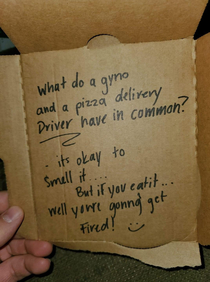 What do a gyno
and a pizza delivery
Driver have in common?
. its okay to
Small it....
But if you eat it...
well you're gonna get
Fired! :)